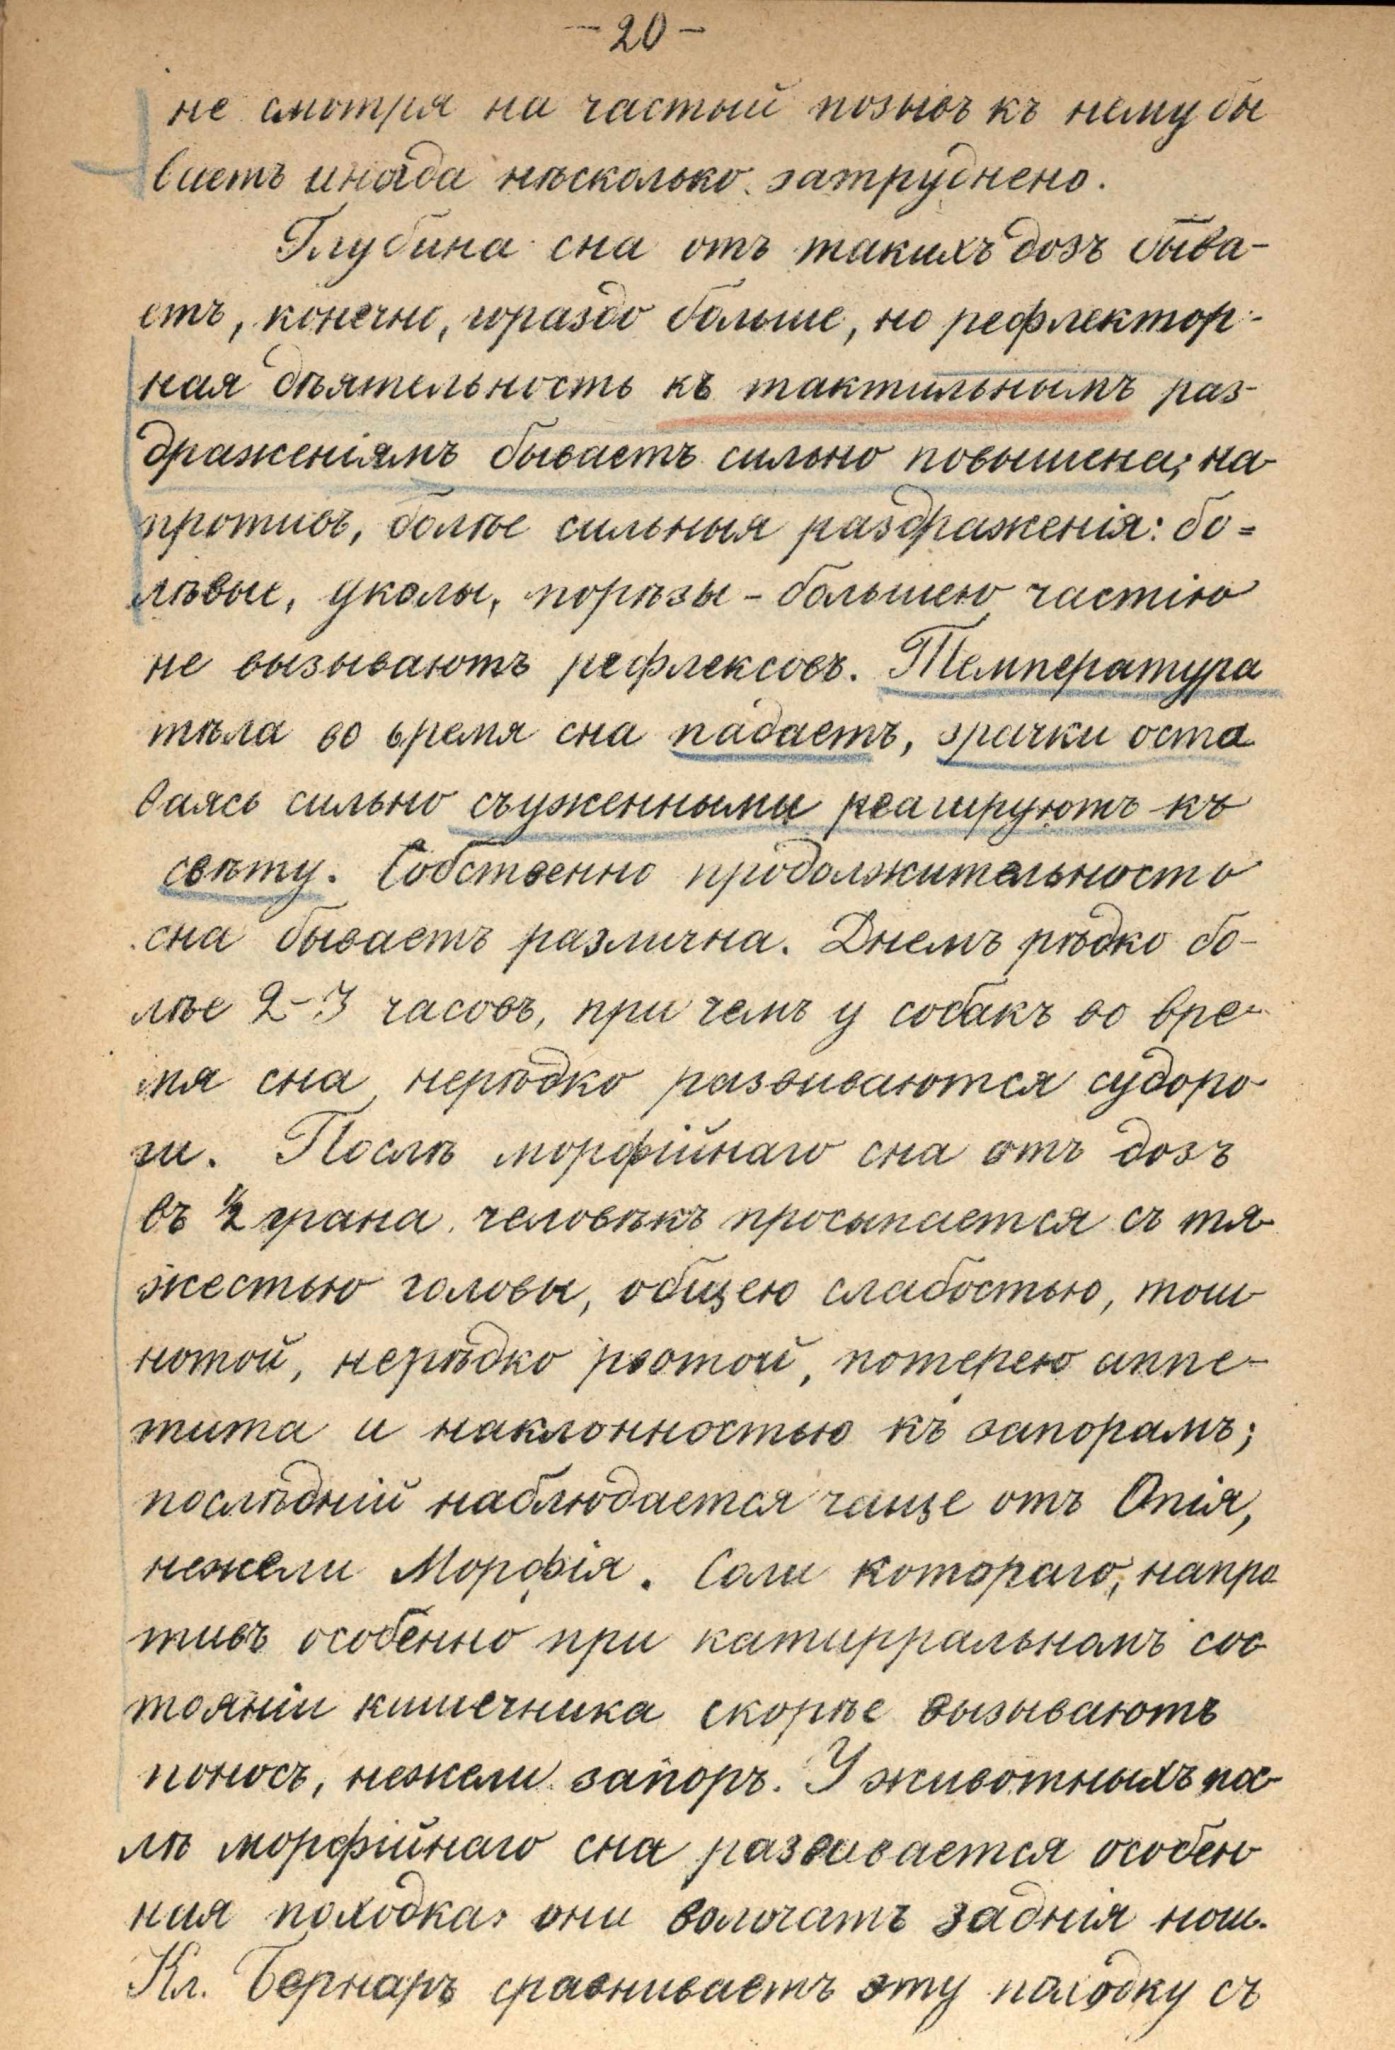 - 20 -
не смотря на частый позывъ къ нему бы
ваетъ иногда нѣсколько затруднено.
Глубина сна отъ такихъ дозъ быва-
етъ, конечно, гораздо больше, но рефлектор-
ная дѣятельность къ тактильнымъ раз-
драженіямъ бываетъ сильно повышена; на
противъ, болѣе сильныя раздраженія: бо-
лѣвые, уколы, порѣзы - большею частію
не вызываютъ рефлексовъ. Температура
тѣла во время сна падаетъ, зрачки оста
ваясь сильно съуженными реагируютъ къ
свѣту. Собственно продолжительность
сна бываетъ различна. Днемъ рѣдко бо-
лѣе 2-3 часовъ, при чемъ у собакъ во вре-
мя сна нерѣдко развиваются судоро
ги. Послѣ морфійнаго сна отъ дозъ
въ ½ грана человѣкъ просыпается съ тя
жестью головы, общею слабостью, тош
нотой, нерѣдко рвотой, потерею аппе-
тита и наклонностью къ запорамъ;
послѣдній наблюдается чаще отъ Опія,
нежели Морфія. Соли котораго, напро
тивъ особенно при катарральномъ сос
тояніи кишечника скорѣе вызываютъ
поносъ, нежели запоръ. У животныхъ пос
лѣ морфійнаго сна развивается особен
ная походка: они волочатъ заднія ноги.
Кл. Бернаръ сравниваетъ эту походку съ